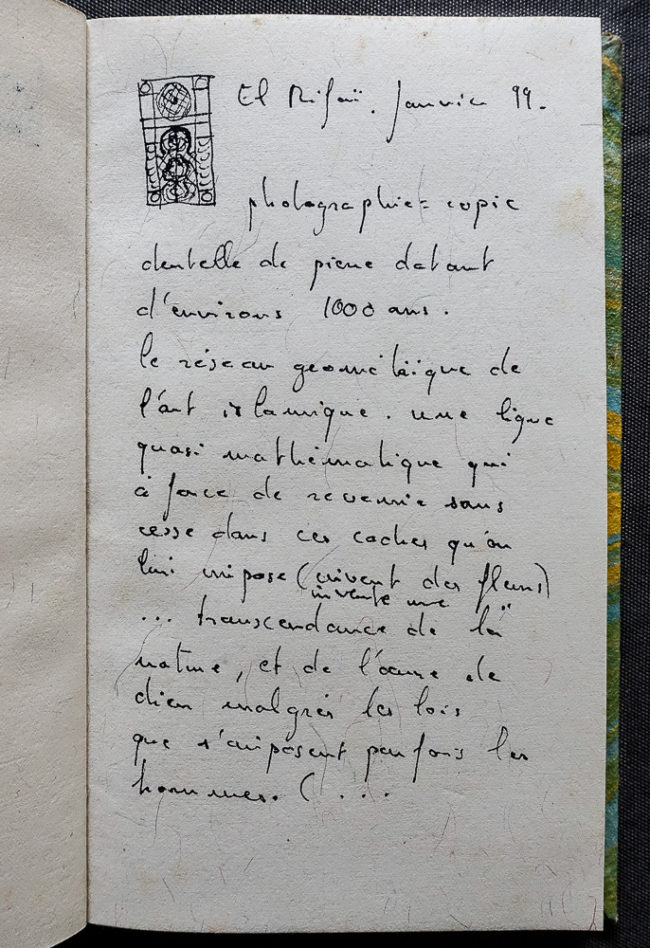 El Rifaï. Janvier 99.
photographie = copie
dentelle de pierre datant
d'environs 1000 ans.
le réseau géométrique de
l'art islamique. une ligne
quasi mathématique qui
à force de revenir sans
cesse dans ces caches qu'on
lui impose ( des fleurs)
invente une
... transcendance de la
nature, et de l'œuvre de
dieu malgrés les lois
que s'imposent parfois les
hommes. (...